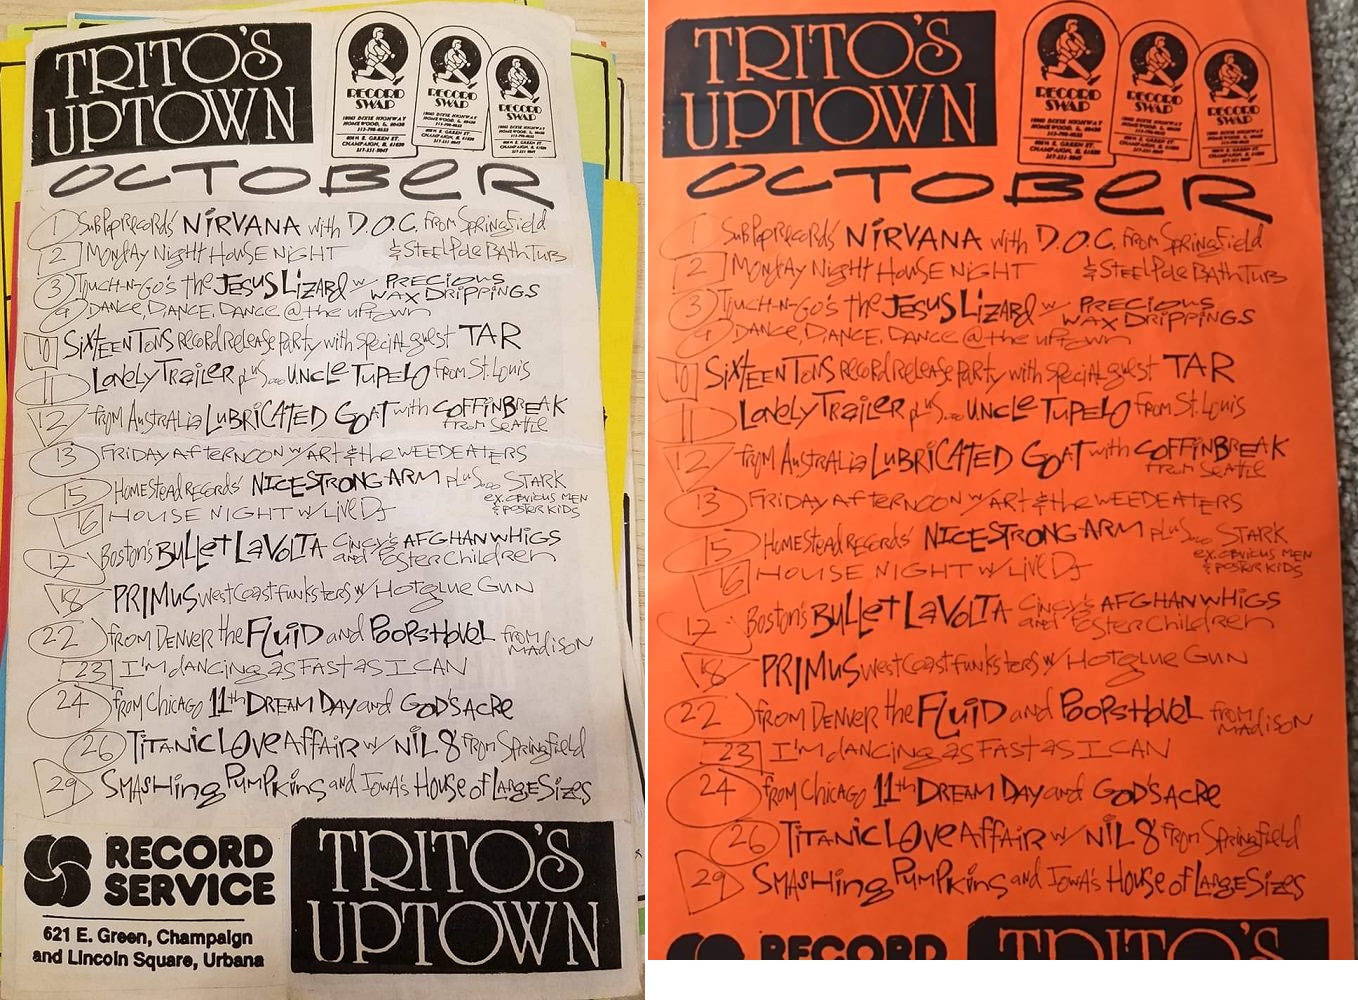 TRITO'S
UPTOWN
RECORD
SWAP
18062 DIXIE HIGHWAY
HOMEWOOD, IL 60430
CHAMPAIGN, IL 61820
RECORD
SWAP
RECORD
SWAP
OCTOBER
1 SubPop Records' NiRVANA with D.O.C. from Springfield
2 Monday Night House Night & Steel Pole Bath Tub
3 Touch-n-Go's the Jesus Lizard w/ Precious
Wax Drippings
4 Dance, Dance, Dance @ the uptown
10 Sixteen Tons Record release Party with special guest TAR
11 Lonely Trailer plus... Uncle Tupelo from St. Louis
12 from Australia Lubricated Goat with Coffin Break
from Seattle
13 Friday Afternoon w/ Art & the Weedeaters
15 Homestead Records' Nice Strong Arm plus... Stark
ex. Obvious Men
& Poster Kids
16 House Night w/ Live DJ
17 Boston's Bullet LaVolta Cincy's Afghan Whigs
and Poster Children
18 Primus West Coast funksters w/ Hot glue Gun
22 from Denver the Fluid and Poopshovel from
Madison
23 I'm dancing as Fast as I Can
24 from Chicago 11th Dream Day and God's Acre
26 Titanic Love Affair w/ Nil 8 from Springfield
29 Smashing Pumpkins and Iowa's House of Large Sizes
RECORD
SERVICE
621 E. Green, Champaign
and Lincoln Square, Urbana
TRITO'S
UPTOWN
TRITO'S
UPTOWN
RECORD
SWAP
RECORD
SWAP
RECORD
SWAP
OCTOBER
1 SubPop Records' NiRVANA with D.O.C. from Springfield
2 Monday Night House Night & Steel Pole Bath Tub
3 Touch-n-Go's the Jesus Lizard w/ Precious
Wax Drippings
4 Dance, Dance, Dance @ the uptown
10 Sixteen Tons Record release Party with special guest TAR
11 Lonely Trailer plus... Uncle Tupelo from St. Louis
12 from Australia Lubricated Goat with Coffin Break
from Seattle
13 Friday Afternoon w/ Art & the Weedeaters
15 Homestead Records' Nice Strong Arm plus... Stark
ex. Obvious Men
& Poster Kids
16 House Night w/ Live DJ
17 Boston's Bullet LaVolta Cincy's Afghan Whigs
and Poster Children
18 Primus West Coast funksters w/ Hot glue Gun
22 from Denver the Fluid and Poopshovel from
Madison
23 I'm dancing as Fast as I Can
24 from Chicago 11th Dream Day and God's Acre
26 Titanic Love Affair w/ Nil 8 from Springfield
29 Smashing Pumpkins and Iowa's House of Large Sizes
RECORD
TRITO'S